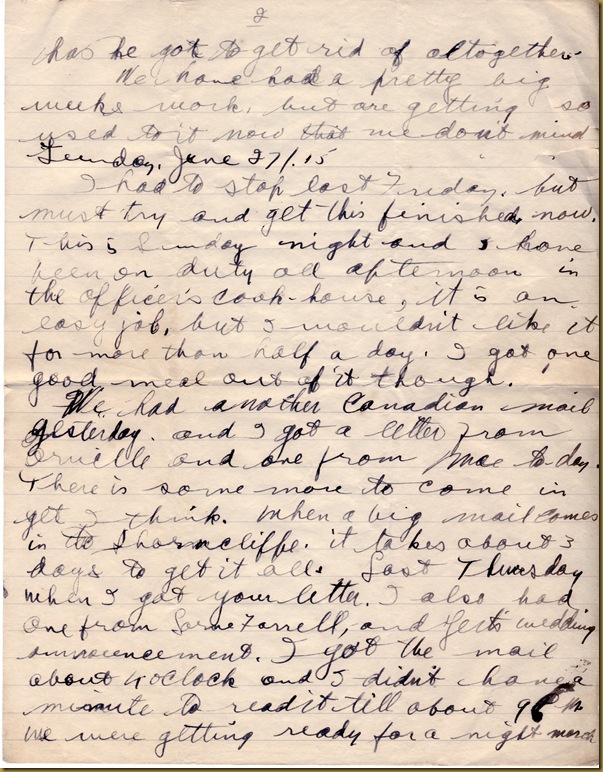 2
has he got to get rid of altogether.
We have had a pretty big
weeks work, but are getting so
used to it now that we don't mind
Sunday, June 27/.15
I had to stop last Friday, but
must try and get this finished, now.
This is Sunday night and I have
been on duty all afternoon in
the officer's cook-house, it is an
easy job, but I wouldn't like it
for more than half a day. I got one
good meal out of it though.
We had another Canadian mail
yesterday. and I got a letter from
and one from to-day.
There is some more to come in
yet I think. When a big mail comes
in to Shorncliffe. it takes about 3
days to get it all. Last Thursday
when I got your letter. I also had
one from Farrell, and wedding
announcement. I got the mail
about 4 oclock and I didn't have a
minute to read it till about 9 P M
We were getting ready for a night march